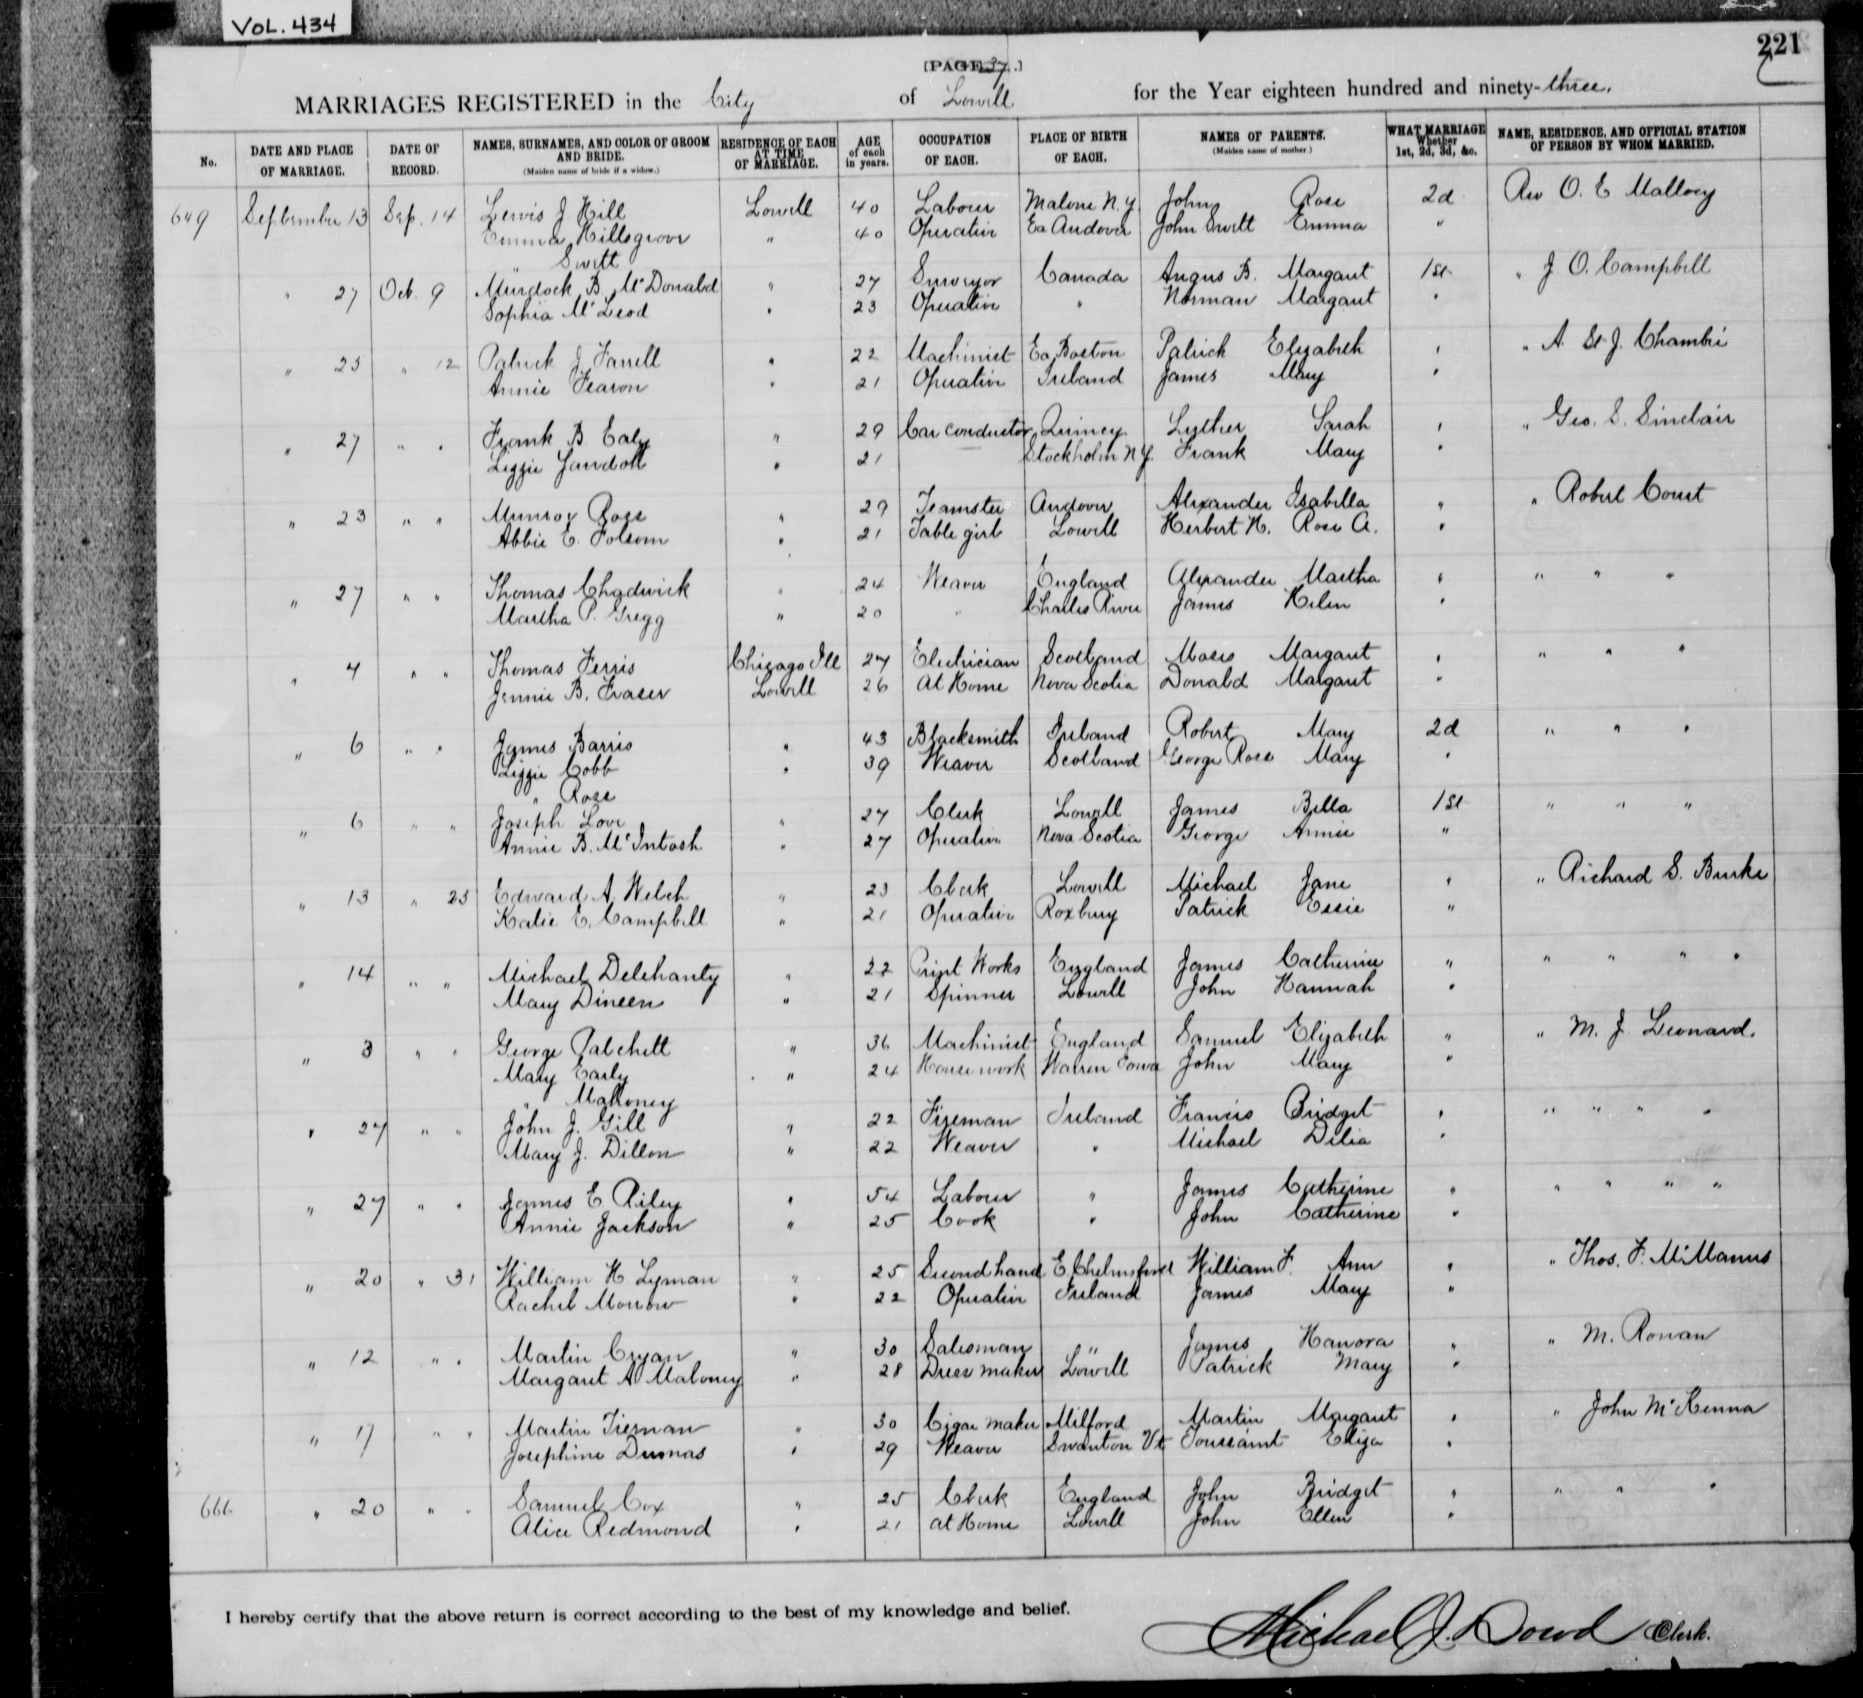 VOL. 434
221
[PAGE 37.]
MARRIAGES REGISTERED in the City of Lowell for the Year eighteen hundred and ninety-three.
No. DATE AND PLACE OF MARRIAGE. DATE OF RECORD. NAMES, SURNAMES, AND COLOR OF GROOM AND BRIDE. (Maiden name of bride if a widow.) RESIDENCE OF EACH AT TIME OF MARRIAGE. AGE of each in years. OCCUPATION OF EACH. PLACE OF BIRTH OF EACH. NAMES OF PARENTS. (Maiden name of mother.) WHAT MARRIAGE Whether 1st, 2d, 3d, &c. NAME, RESIDENCE, AND OFFICIAL STATION OF PERSON BY WHOM MARRIED.
649 September 13 Sep. 14 Lewis J Hill Lowell 40 Laborer Malone N.Y. John Rose 2d Rev O. E Mallory
Emma Hillsgrove " 40 Operative Ea Andover John Swett Emma "
" Swett
" 27 Oct. 9 Murdock B. McDonald " 27 Surveyor Canada Angus B. Margaret 1st " J. O. Campbell
Sophia McLeod " 23 Operative " Norman Margaret "
" 25 " 12 Patrick J. Farrell " 22 Machinist Ea Boston Patrick Elizabeth " " A. St. J. Chambré
Annie Fearon " 21 Operative Ireland James Mary "
" 27 " " Frank B Ealy " 29 Car conductor Quincy Lyther Sarah " " Geo. S. Sinclair
Lizzie Jandoll " 21 Stockholm N.Y. Frank Mary "
" 23 " " Munroe Ross " 29 Teamster Andover Alexander Isabella " " Robert Court
Abbie E. Folsom " 21 Table girl Lowell Herbert H. Rose A. "
" 27 " " Thomas Chadwick " 24 Weaver England Alexander Martha " " " "
Martha P. Gregg " 20 " Charles River James Helen "
" 4 " " Thomas Ferris Chicago Ill 27 Electrician Scotland Moses Margaret " " " "
Jennie B. Fraser Lowell 26 At Home Nova Scotia Donald Margaret "
" 6 " " James Barris " 43 Blacksmith Ireland Robert Mary 2d " " "
Lizzie Cobb " 39 Weaver Scotland George Ross Mary "
" Ross
" 6 " " Joseph Love " 27 Clerk Lowell James Bella 1st " " "
Annie B. McIntosh " 27 Operative Nova Scotia George Annie "
" 13 " 25 Edward A. Welch " 23 Clerk Lowell Michael Jane " " Richard S. Burke
Katie E. Campbell " 21 Operative Roxbury Patrick Essie "
" 14 " " Michael Delehanty " 22 Print Works England James Catherine " " " " "
Mary Dineen " 21 Spinner Lowell John Hannah "
" 3 " " George Patchett " 36 Machinist England Samuel Elizabeth " " M. J. Leonard.
Mary Early " 24 Housework Warren Iowa John Mary "
" Mahoney
" 27 " " John J. Gill " 22 Fireman Ireland Francis Bridget " " " " "
Mary J. Dillon " 22 Weaver " Michael Delia "
" 27 " " James E Riley " 54 Laborer " James Catherine " " " " "
Annie Jackson " 25 Cook " John Catherine "
" 20 " 31 William H Lyman " 25 Second hand E. Chelmsford William F. Ann " " Thos. F. McManus
Rachel Morrow " 22 Operative Ireland James Mary "
" 12 " " Martin Cryan " 30 Salesman " James Hanora " " M. Ronan
Margaret A Maloney " 28 Dress maker Lowell Patrick Mary "
" 17 " " Martin Tiernan " 30 Cigar maker Milford Martin Margaret " " John McKenna
Josephine Dumas " 29 Weaver Swanton Vt Toussaint Eliza "
666 " 20 " " Samuel Cox " 25 Clerk England John Bridget " " " "
Alice Redmond " 21 At Home Lowell John Ellen "
I hereby certify that the above return is correct according to the best of my knowledge and belief.
Michael J. Dowd Clerk.